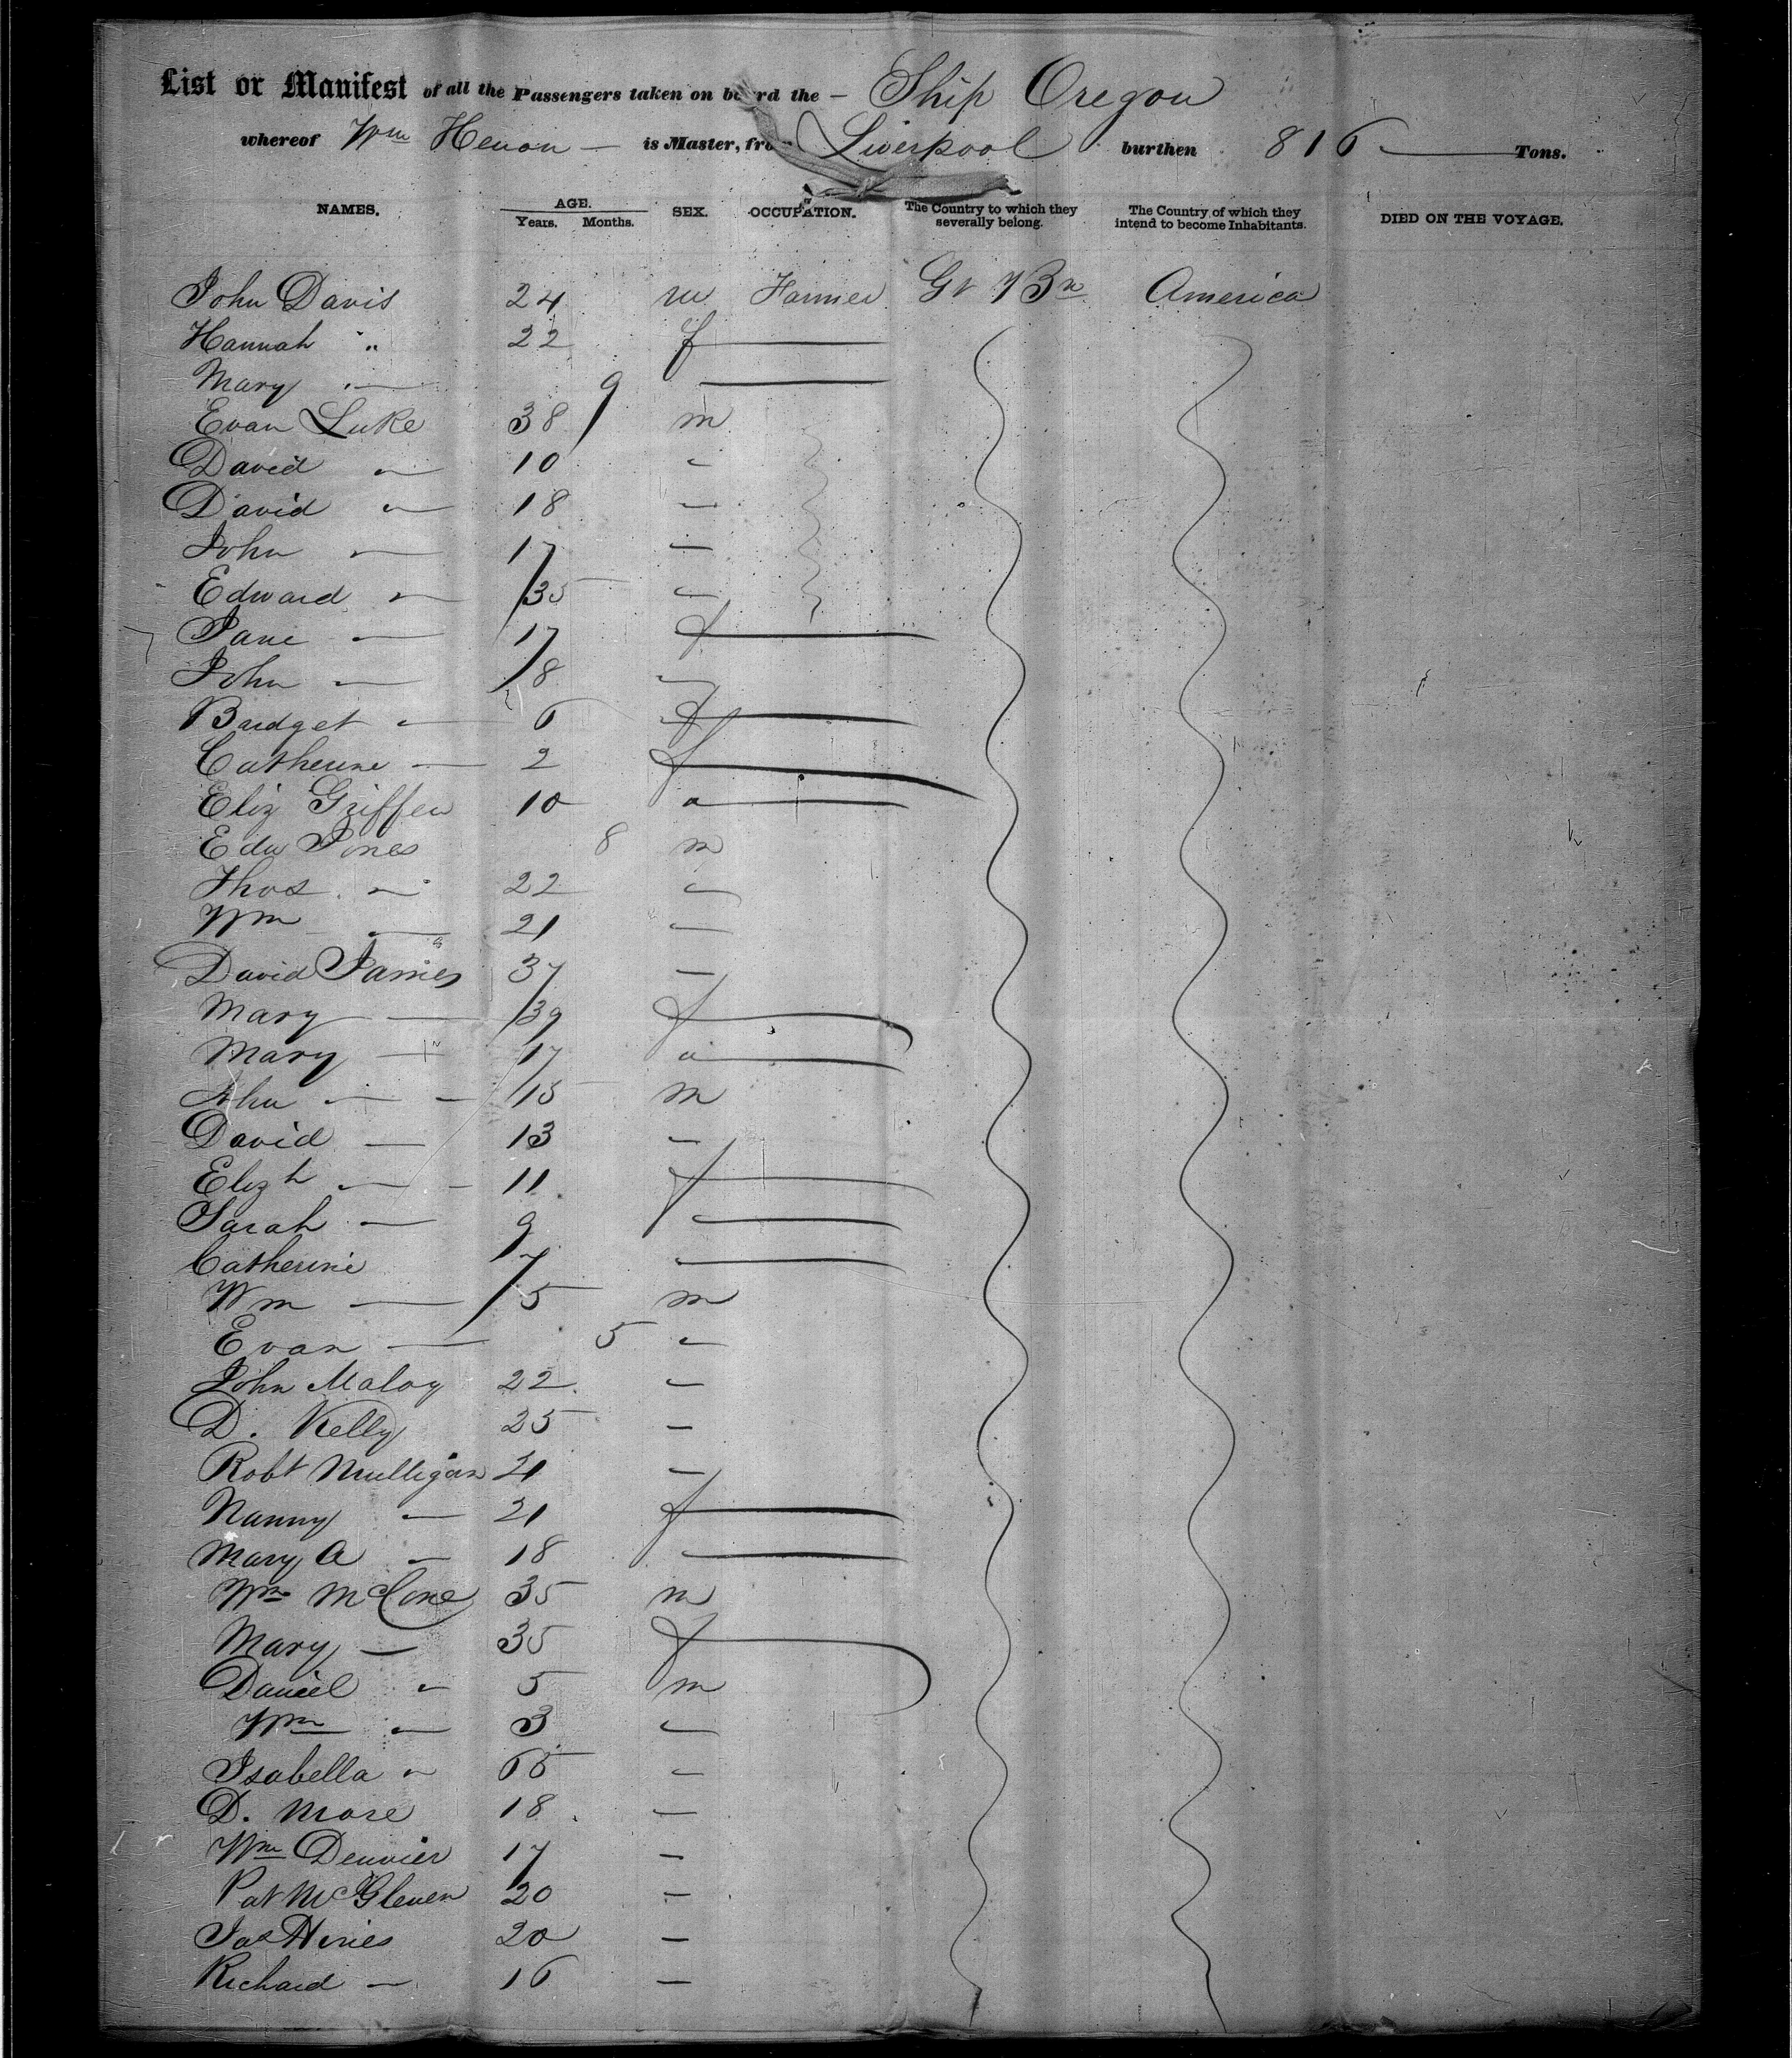 List or Manifest of all the Passengers taken on board the — Ship Oregon
whereof Wm Henon — is Master, from Liverpool burthen 816 — Tons.
NAMES. AGE. SEX. OCCUPATION. The Country to which they severally belong. The Country of which they intend to become Inhabitants. DIED ON THE VOYAGE.
Years. Months.
John Davis 24 m Farmer Gt Bn America
Hannah " 22 f —
Mary " — 9 —
Evan Luke 38 m
David " 10 "
David " 18 "
John " 17 "
Edward " 35 "
Jane — 17 f —
John — 8 "
Bridget " 6 f —
Catherine — 2 f —
Eliz Griffen 10 " —
Edw Jones 8 m
Thos " 22 "
Wm — 21 "
David James 37 —
Mary — 39 f —
Mary — 17 " —
John — 15 m
David — 13 —
Elizh — 11 f —
Sarah — 9 —
Catherine 7 —
Wm — 5 m
Evan — 5 "
John Maloy 22 "
D. Kelly 25 —
Robt Mulligan 21 —
Nanny — 21 f —
Mary A — 18 —
Wm McCone 35 m
Mary — 35 f —
Daniel " 5 m
Wm " 3 "
Isabella " 65 "
D. More 18 —
Wm Denvier 17 —
Pat McGleven 20 —
Jas Hines 20 —
Richard — 16 —